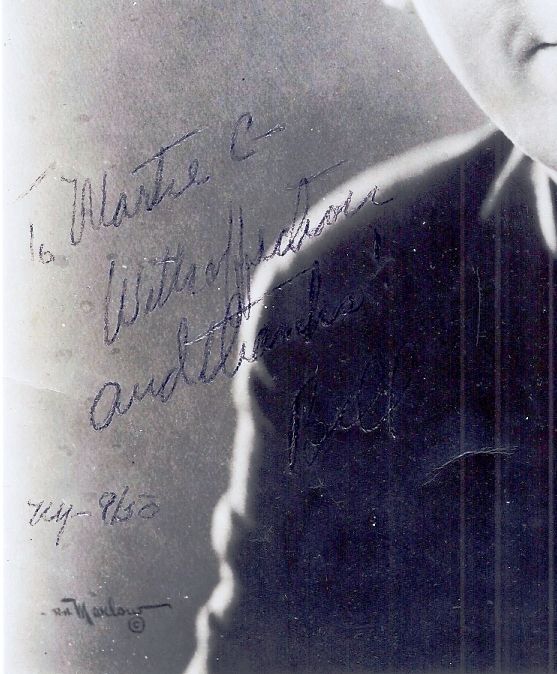 To Martie C
With affection
and thanks!
Bill
NY - 9/50
Marlow ©